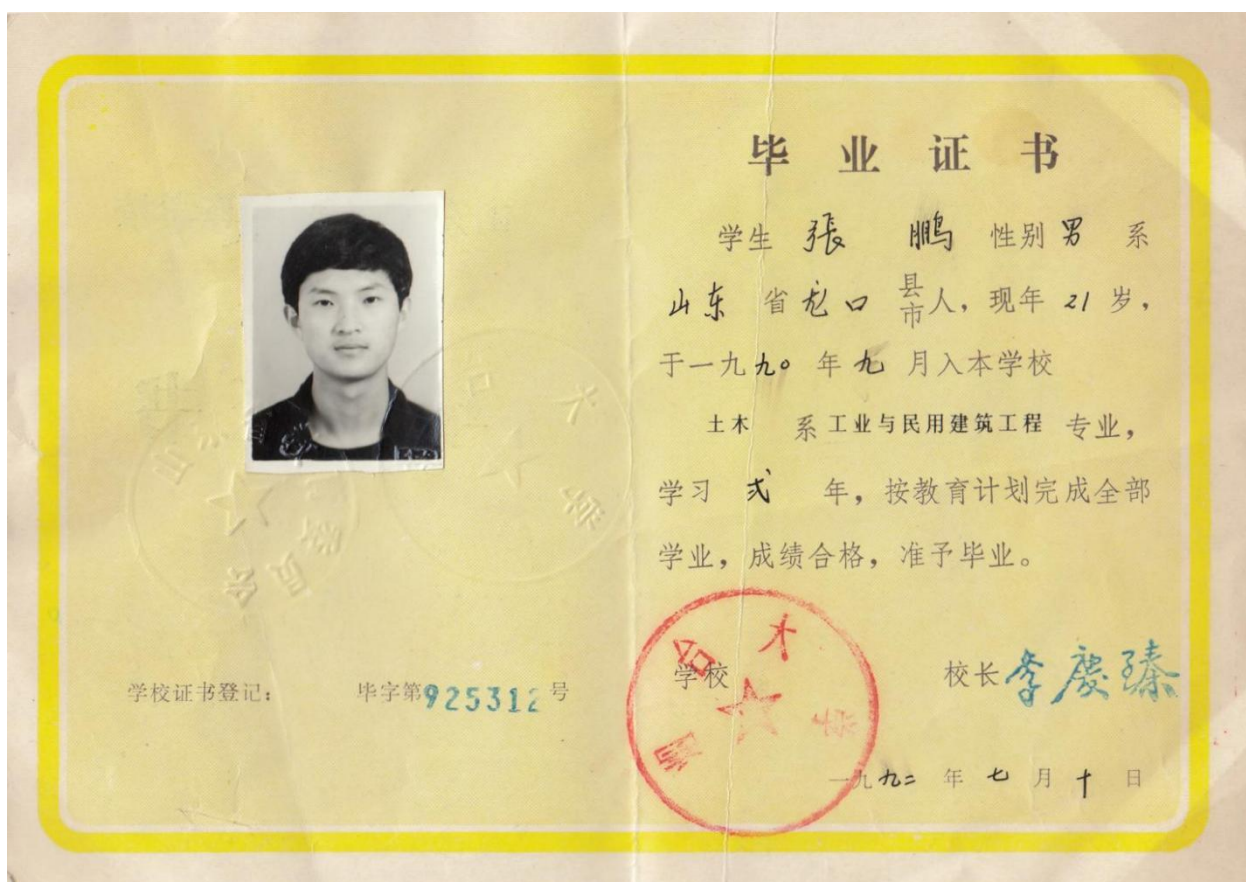 毕业证书
学生 張 鹏 性别 男 系
山东 省 龙口 县市人，现年 21 岁，
于一九九〇年九月入本学校
土木 系 工业与民用建筑工程 专业，
学习 弍 年，按教育计划完成全部
学业，成绩合格，准予毕业。
学校 校长 李慶臻
烟台大学
一九九二年七月十日
学校证书登记： 毕字第925312号